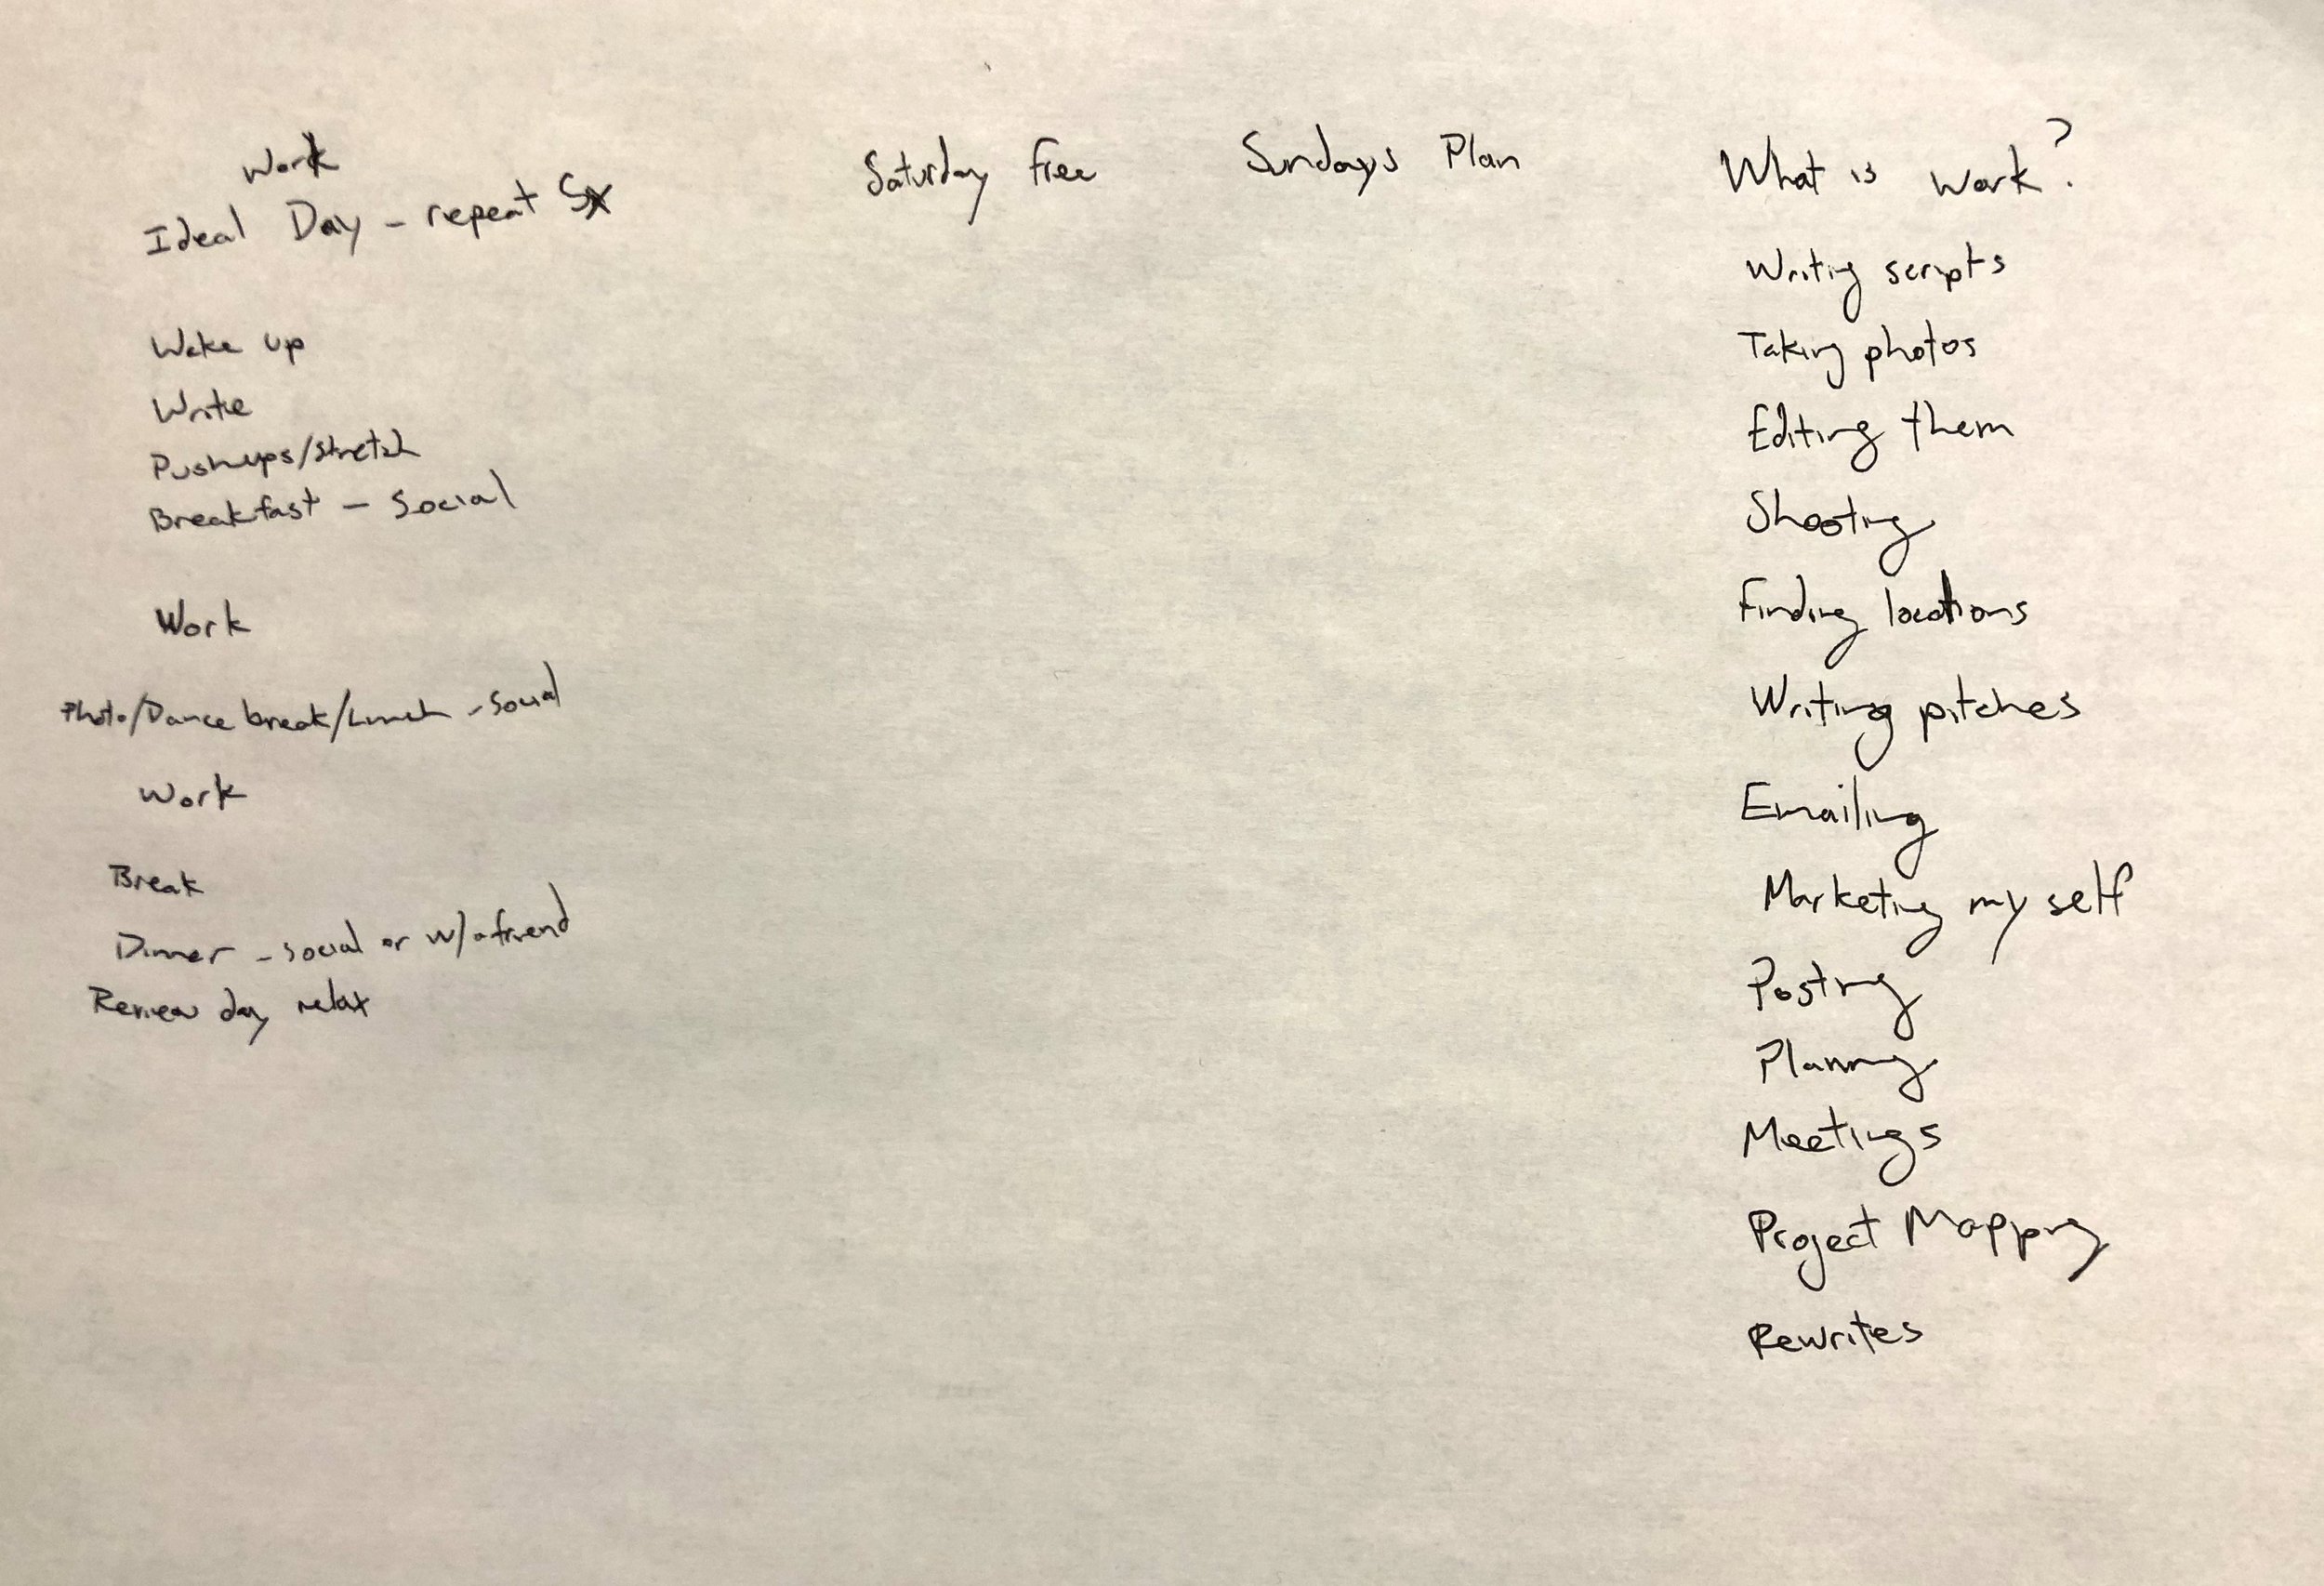 Work
Ideal Day - repeat 5x
Wake up
Write
Pushups/stretch
Breakfast - social
Work
Photo/Dance break/Lunch - social
Work
Break
Dinner - social or w/a friend
Review day relax
Saturday free
Sundays Plan
What is work?
Writing scripts
Taking photos
Editing them
Shooting
Finding locations
Writing pitches
Emailing
Marketing my self
Posting
Planning
Meetings
Project Mapping
Rewrites